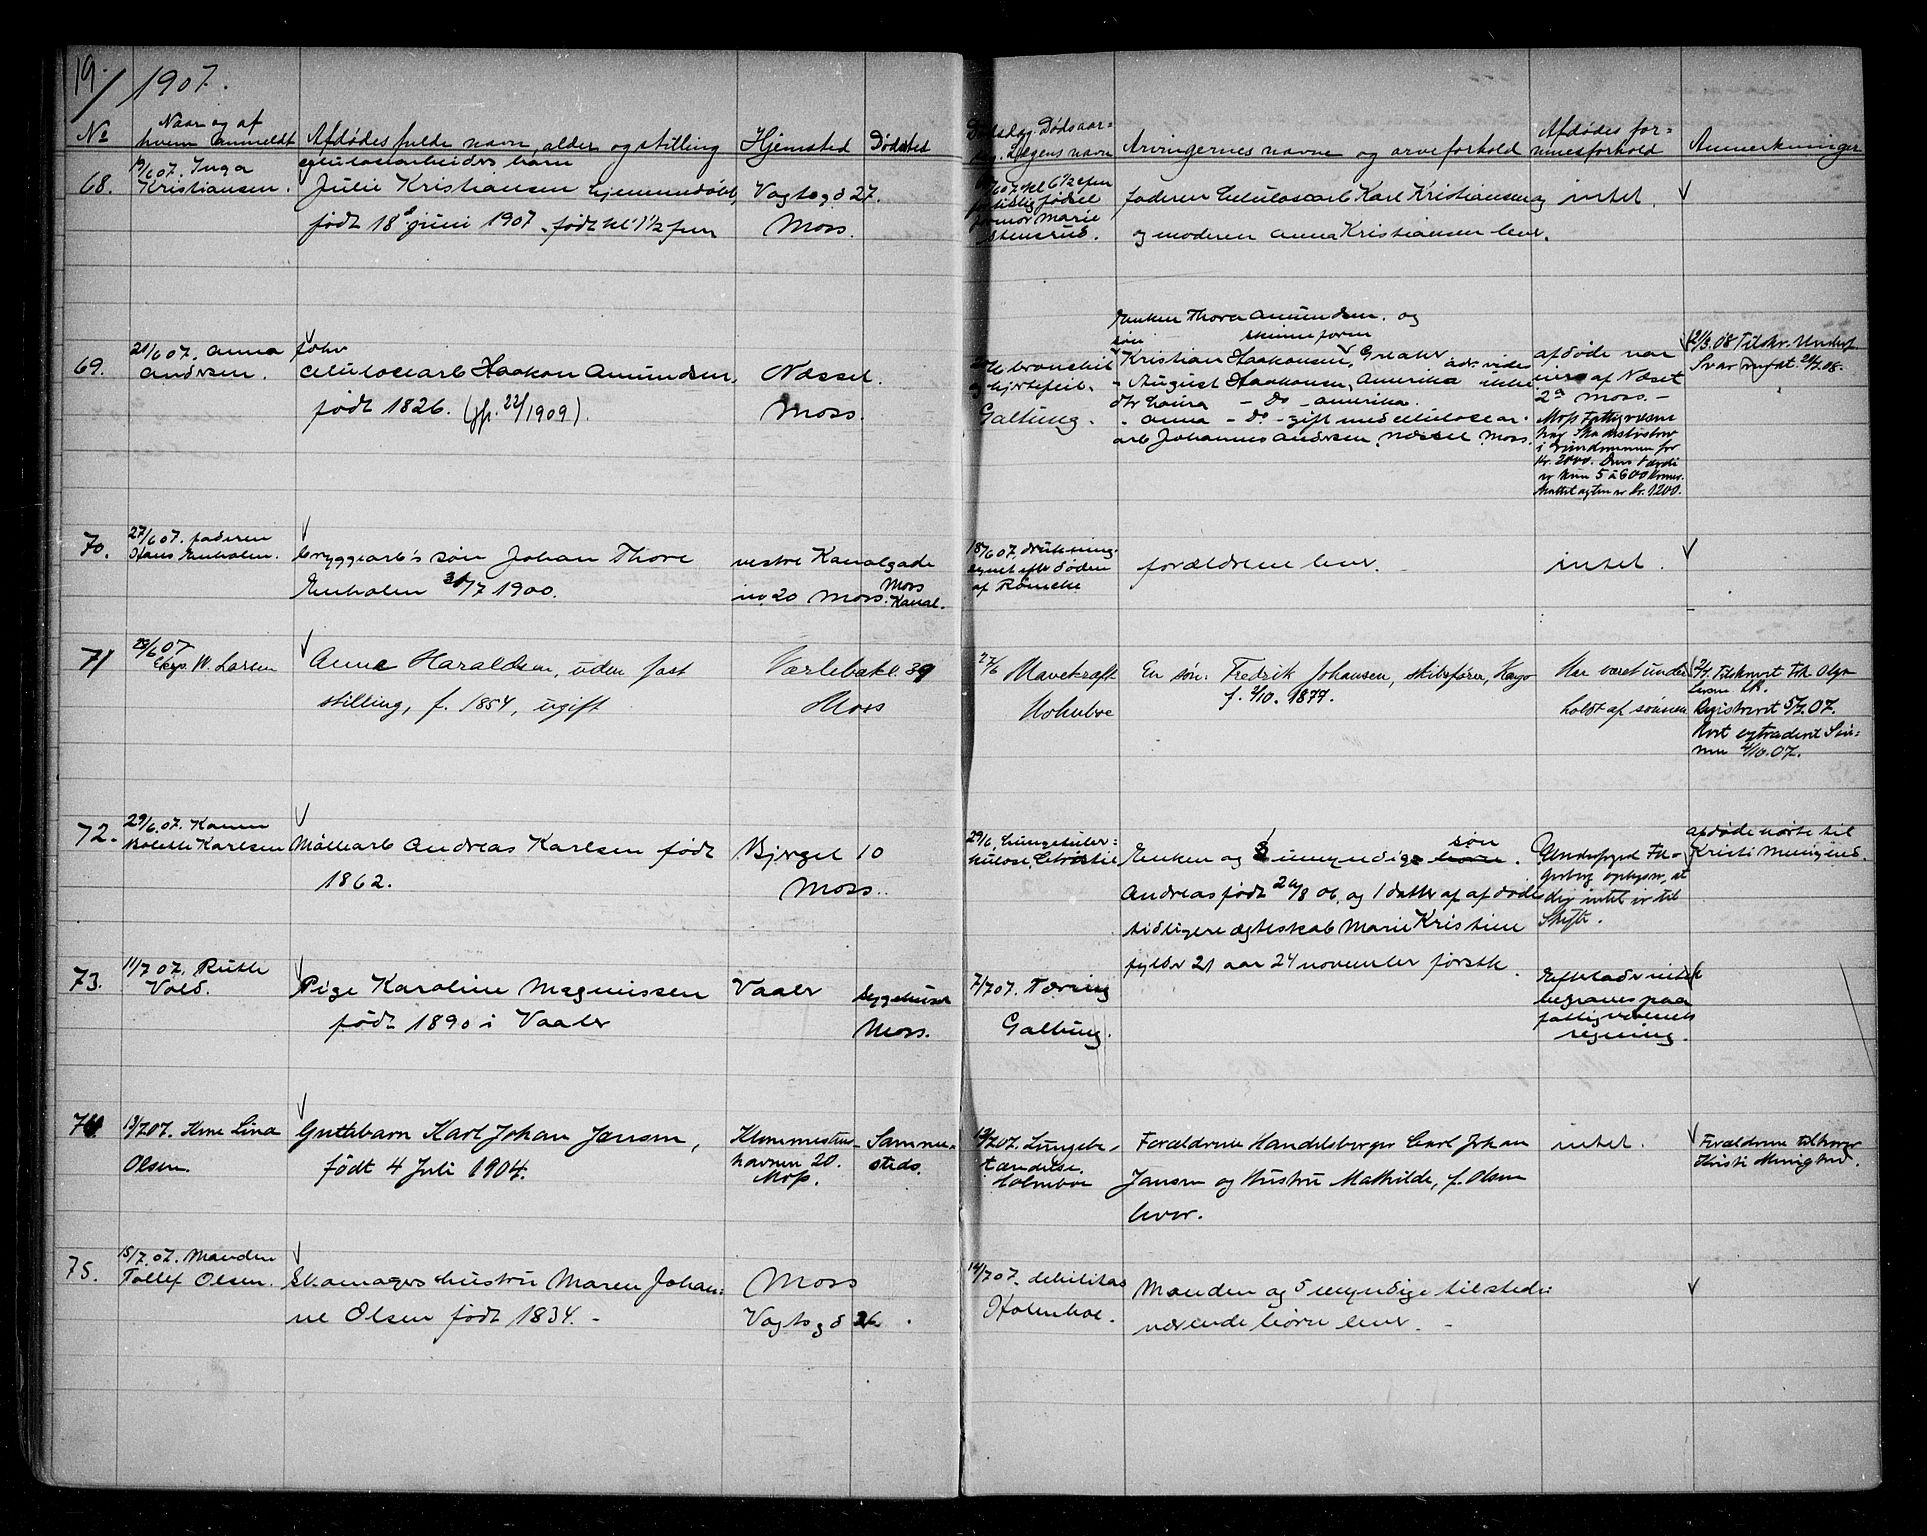 19/ 1907.
No
Naar og af hvem anmeldt
Afdødes fulde navn, alder og stilling
Hjemsted
Dødssted
Dødsdag. Dødsaar=
sag. Lægens navn
Arvingernes navne og arveforhold
Afdødes for=
muesforhold
Anmerkninger
68.
19/6 07. Inga
Kristiansen.
celulosearbeider barn
Julie Kristiansen hjemmedøbt,
født 18 juni 1907. født kl 1 1/2 fm
Vogtsgd 27.
Moss.
19/6 07 kl 6 1/2 efm
for tidlig fødsel
jomor Marie
Stensrud.
faderen Celulosearb Karl Kristiansen
og moderen Anna Kristiansen lever.
intet.
69.
21/6 07. Anna
Andersen.
fohv
celulosearb Haakon Amundsen,
født 1826. (jfr. 22/1909).
Næsset.
Moss.
bronchit
og hjertefeil.
Galtung.
Enken Thora Amundsen. og
søn
Kristian Haakonsen, Greaker
- August Haakonsen, Amerika
dtr Laura - Do - Amerika.
- Anna - Do - gift med celulose ar.
arb Johannes Andersen, Næsset Moss.
afdøde var
eier af Næset
2a Moss. -
Moss Fattigvæsen
har Skadesløsbrev
i Eiendommen for
Kr. 2000. Dens Værdi
er kun 5 à 600 Kroner.
Skattetagten er Kr. 1200.
12/3.08 Tilskr.
Svar 21/4.08.
70.
27/6 07. faderen
Hans Enholm.
bryggearb's søn Johan Thore
Enholm 31/7 1900.
vestre Kanalgade
no. 20 Moss.
Moss
Kanal.
18/6 07. drukning.
synet efter døden
af Rømcke
forældrene lever.
intet.
71
28/6 07
W. Larsen
Anne Haraldsen, uden fast
stilling, f. 1854, ugift
Værlebakk. 39
Moss
27/6 Mavekræft
Holmboe
En søn: Fredrik Johansen, skibsfører,
f. 9/10. 1877.
Har været under
holdt af sønnen
Registreret 5/7.07.
4/10.07.
72.
29/6.07. Konen
Bolette Karlsen
Møllearb Andreas Karlsen født
1862.
Bjerget 10
Moss.
29/6, Lungetuber=
kulose,
Enken og umyndige søn
Andreas født 20/8 06. og 1 datter af afdøde
tidligere ægteskab Marie Kristine
fylder 21 aar 24 november førstk.
oplyser, at
dg intet er til
Skifte.
afdøde hørte til
Kristi Menighed.
73.
11/7 07. Ruth
Vold.
Pige Karoline Magnussen
født 1890 i Vaaler
Vaaler
Sygehuset
Moss.
7/7 07. Tæring
Galtung.
Efterlader intet
begraves paa
fattigvæsenets
regning.
74
13/7 07. Kone Lina
Olsen.
Guttebarn Karl Johan Jansen,
født 4 Juli 1904.
Klommesten
havnen 20.
Moss.
Samme=
steds.
12/7 07. Lungebe=
tændelse.
Holmboe
Forældrene Handelsborger Carl Johan
Jansen og Hustru Mathilde, f. Olsen
lever.
intet.
Forældrene tilhører
Kristi Menighed.
75.
15/7.07. Manden
Tollef Olsen.
Skomagers hustru Maren Johan=
ne Olsen født 1834. -
Moss
Vogtsgd 26.
14/7 07. debilitas
Holmboe.
Manden og 5 myndige tilstede=
værende børn lever. -